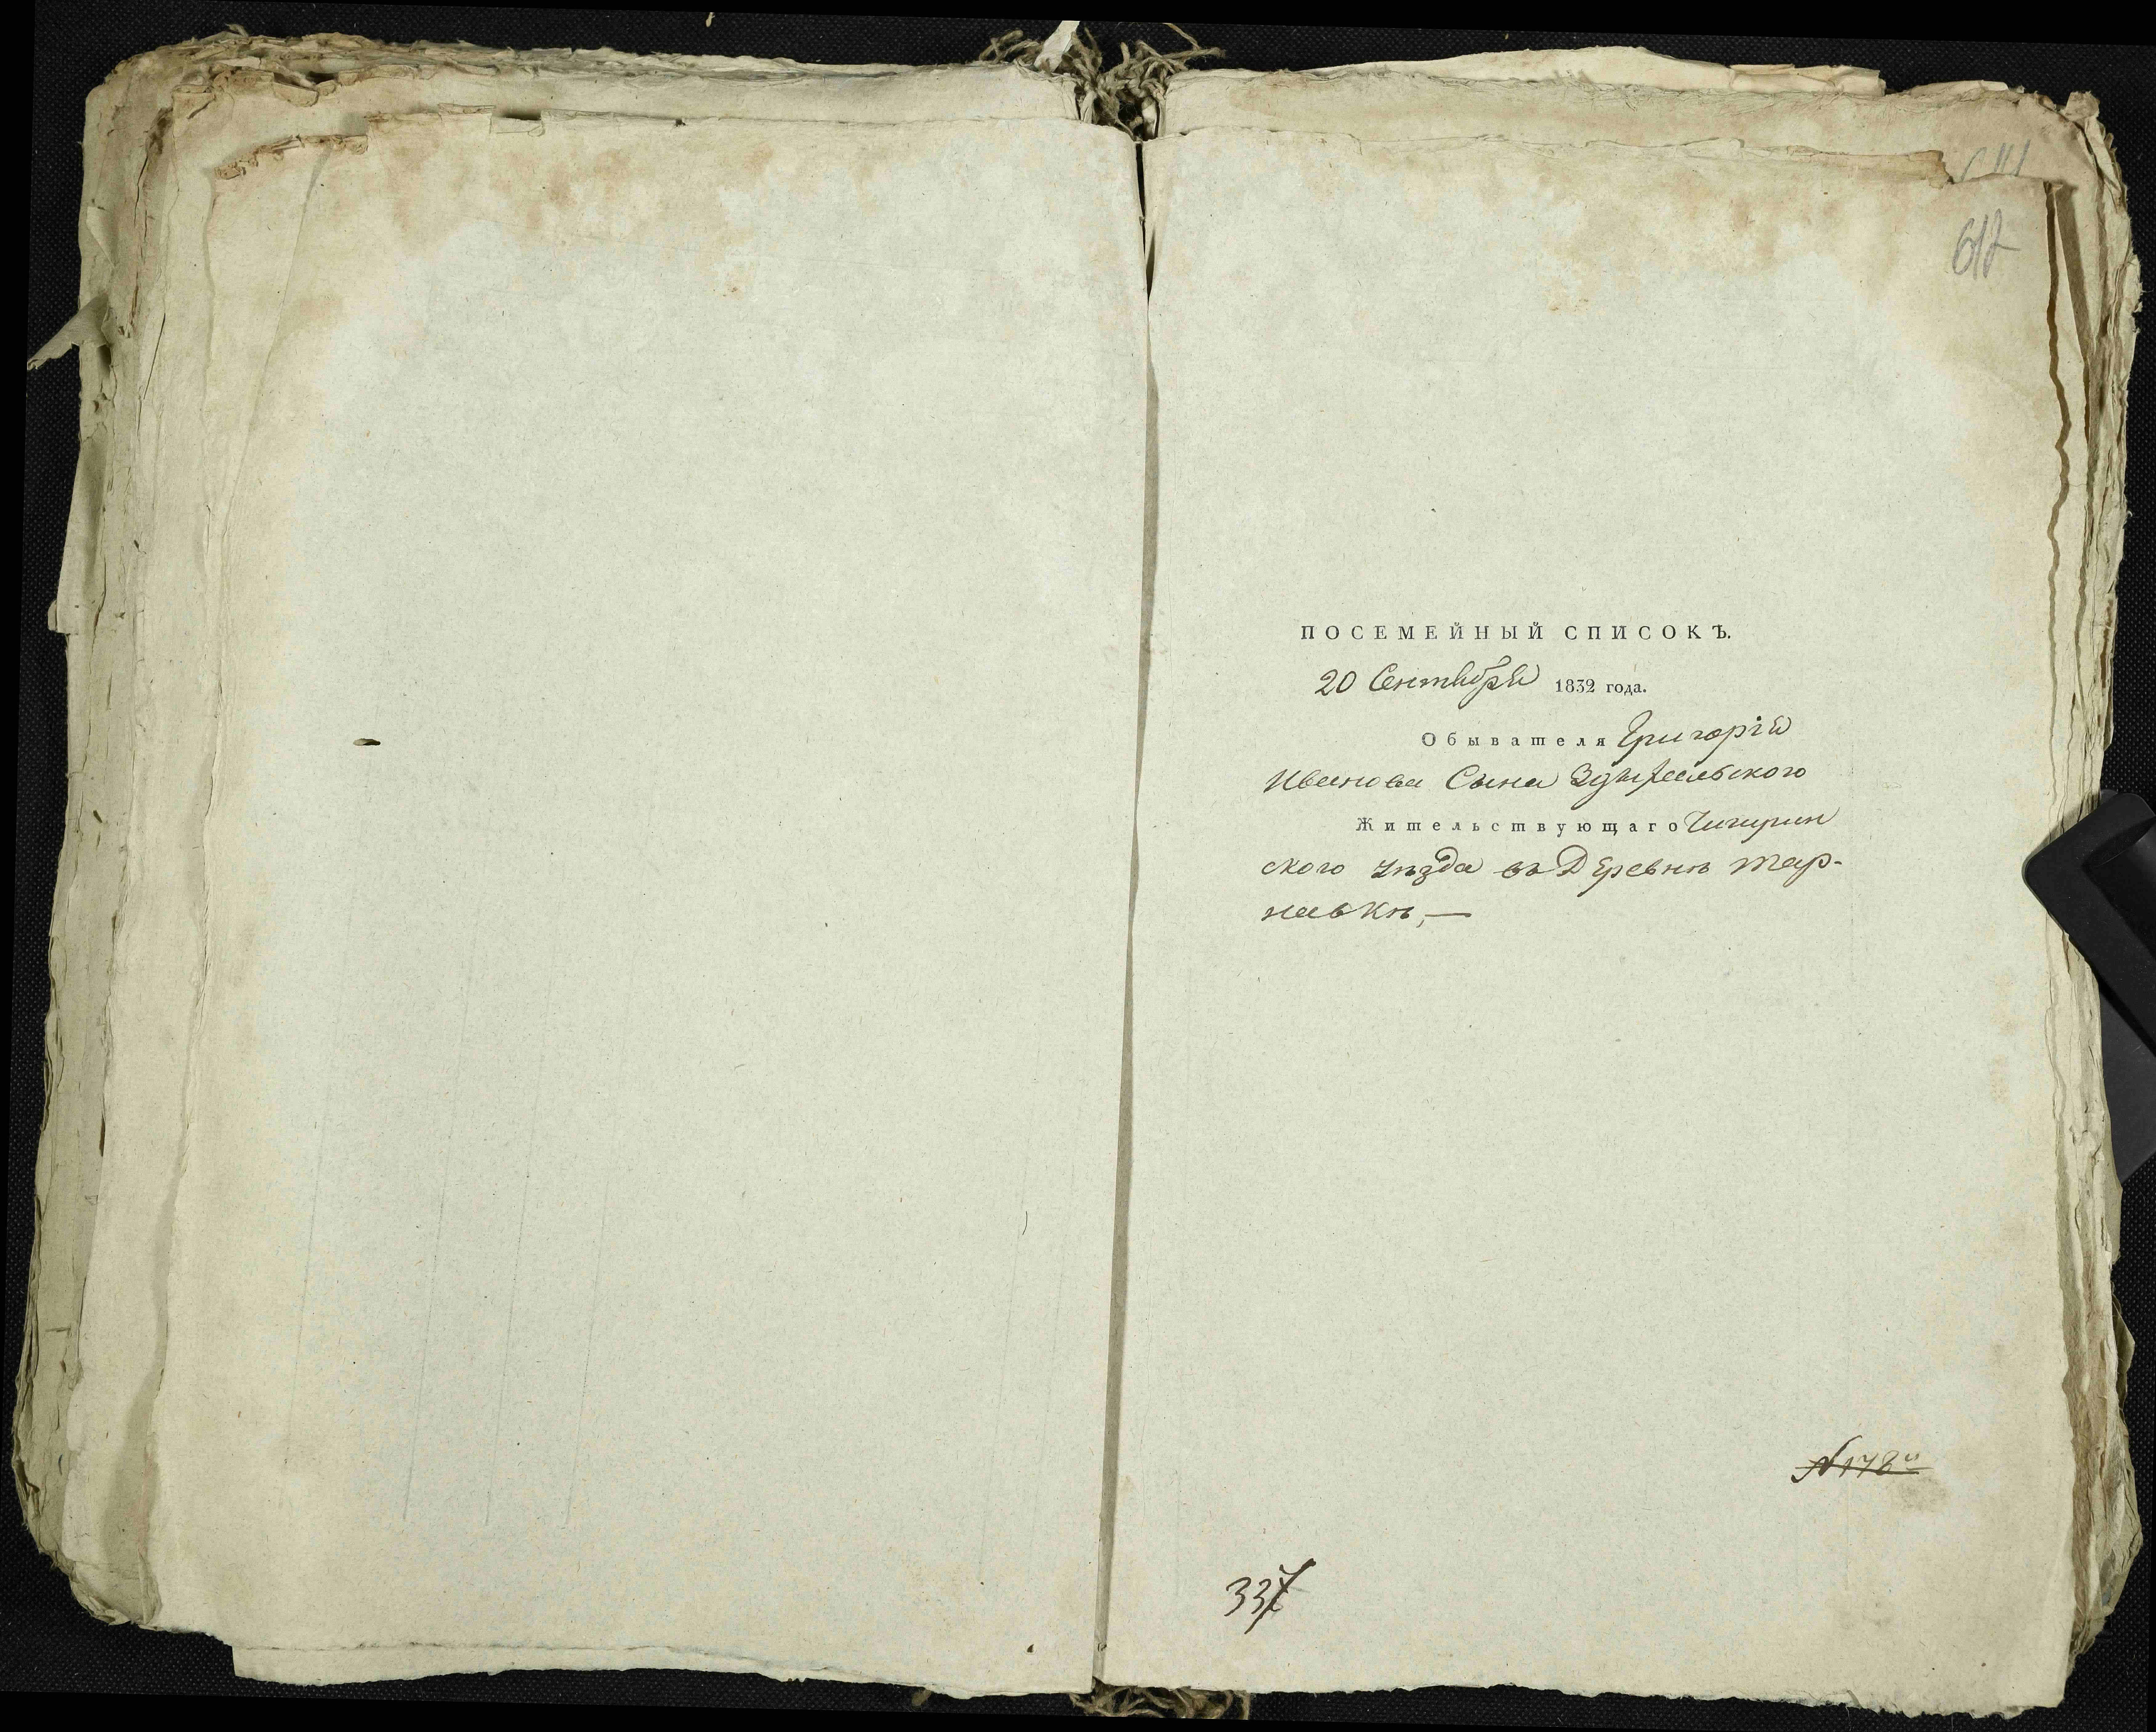 612
ПОСЕМЕЙНЫЙ СПИСОКЪ.
20 Сентября 1832 года.
Обывателя Григорія
Иванова Сына
Жительствующаго Чигирин
ского уѣзда въ Деревнѣ Тар-
навкѣ,—
№ 178
337